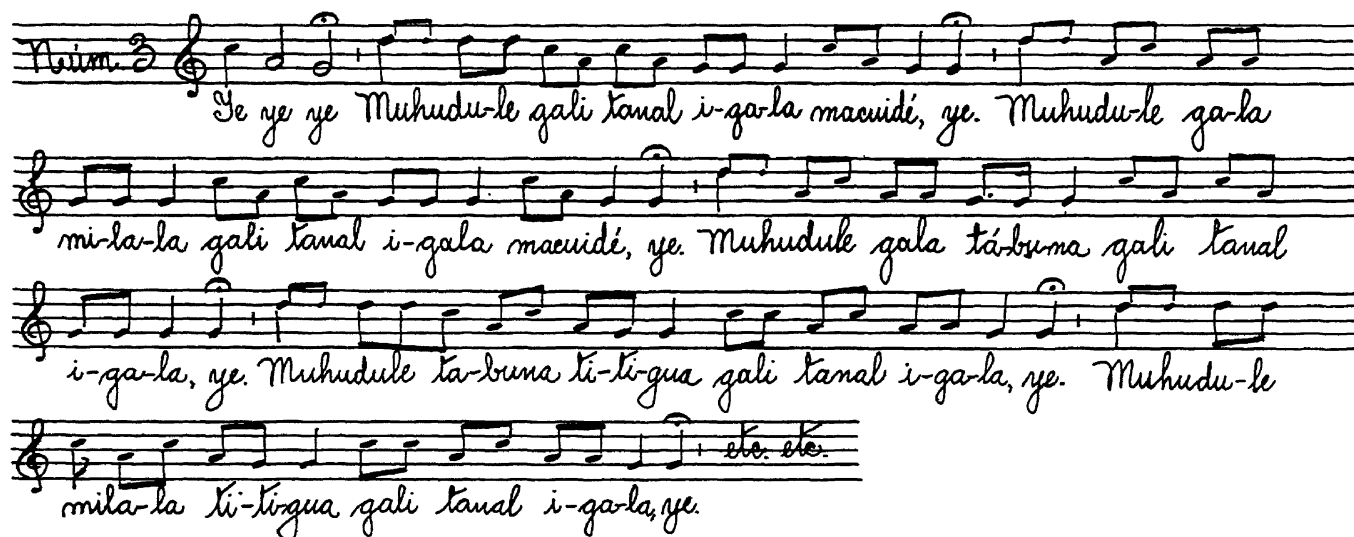 Núm. 3
Ye ye ye Muhudu-le gali tanal i-ga-la macuidé, ye. Muhudu-le ga-la
mi-la-la gali tanal i-gala macuidé, ye. Muhudule gala tá-buna gali tanal
i-ga-la, ye. Muhudule ta-buna ti-ti-gua gali tanal i-ga-la, ye. Muhudu-le
etc. etc.
mila-la ti-ti-gua gali tanal i-ga-la, ye.